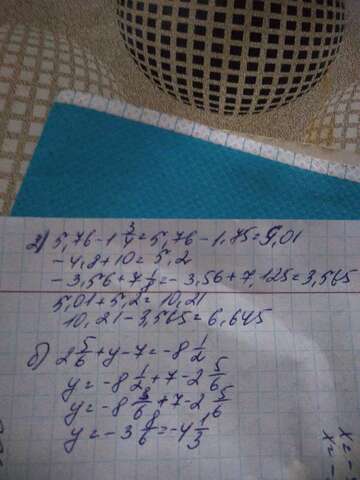 а) 5,76-1 3/4=5,76-1,75=5,01
-4,8+10=5,2
-3,56+7 1/8=-3,56+7,125=3,565
5,01+5,2=10,21
10,21-3,565=6,645
б) 2 5/6+y-7=-8 1/2
y=-8 1/2+7-2 5/6
y=-8 3/6+7-2 5/6
y=-3 8/6=-4 1/3